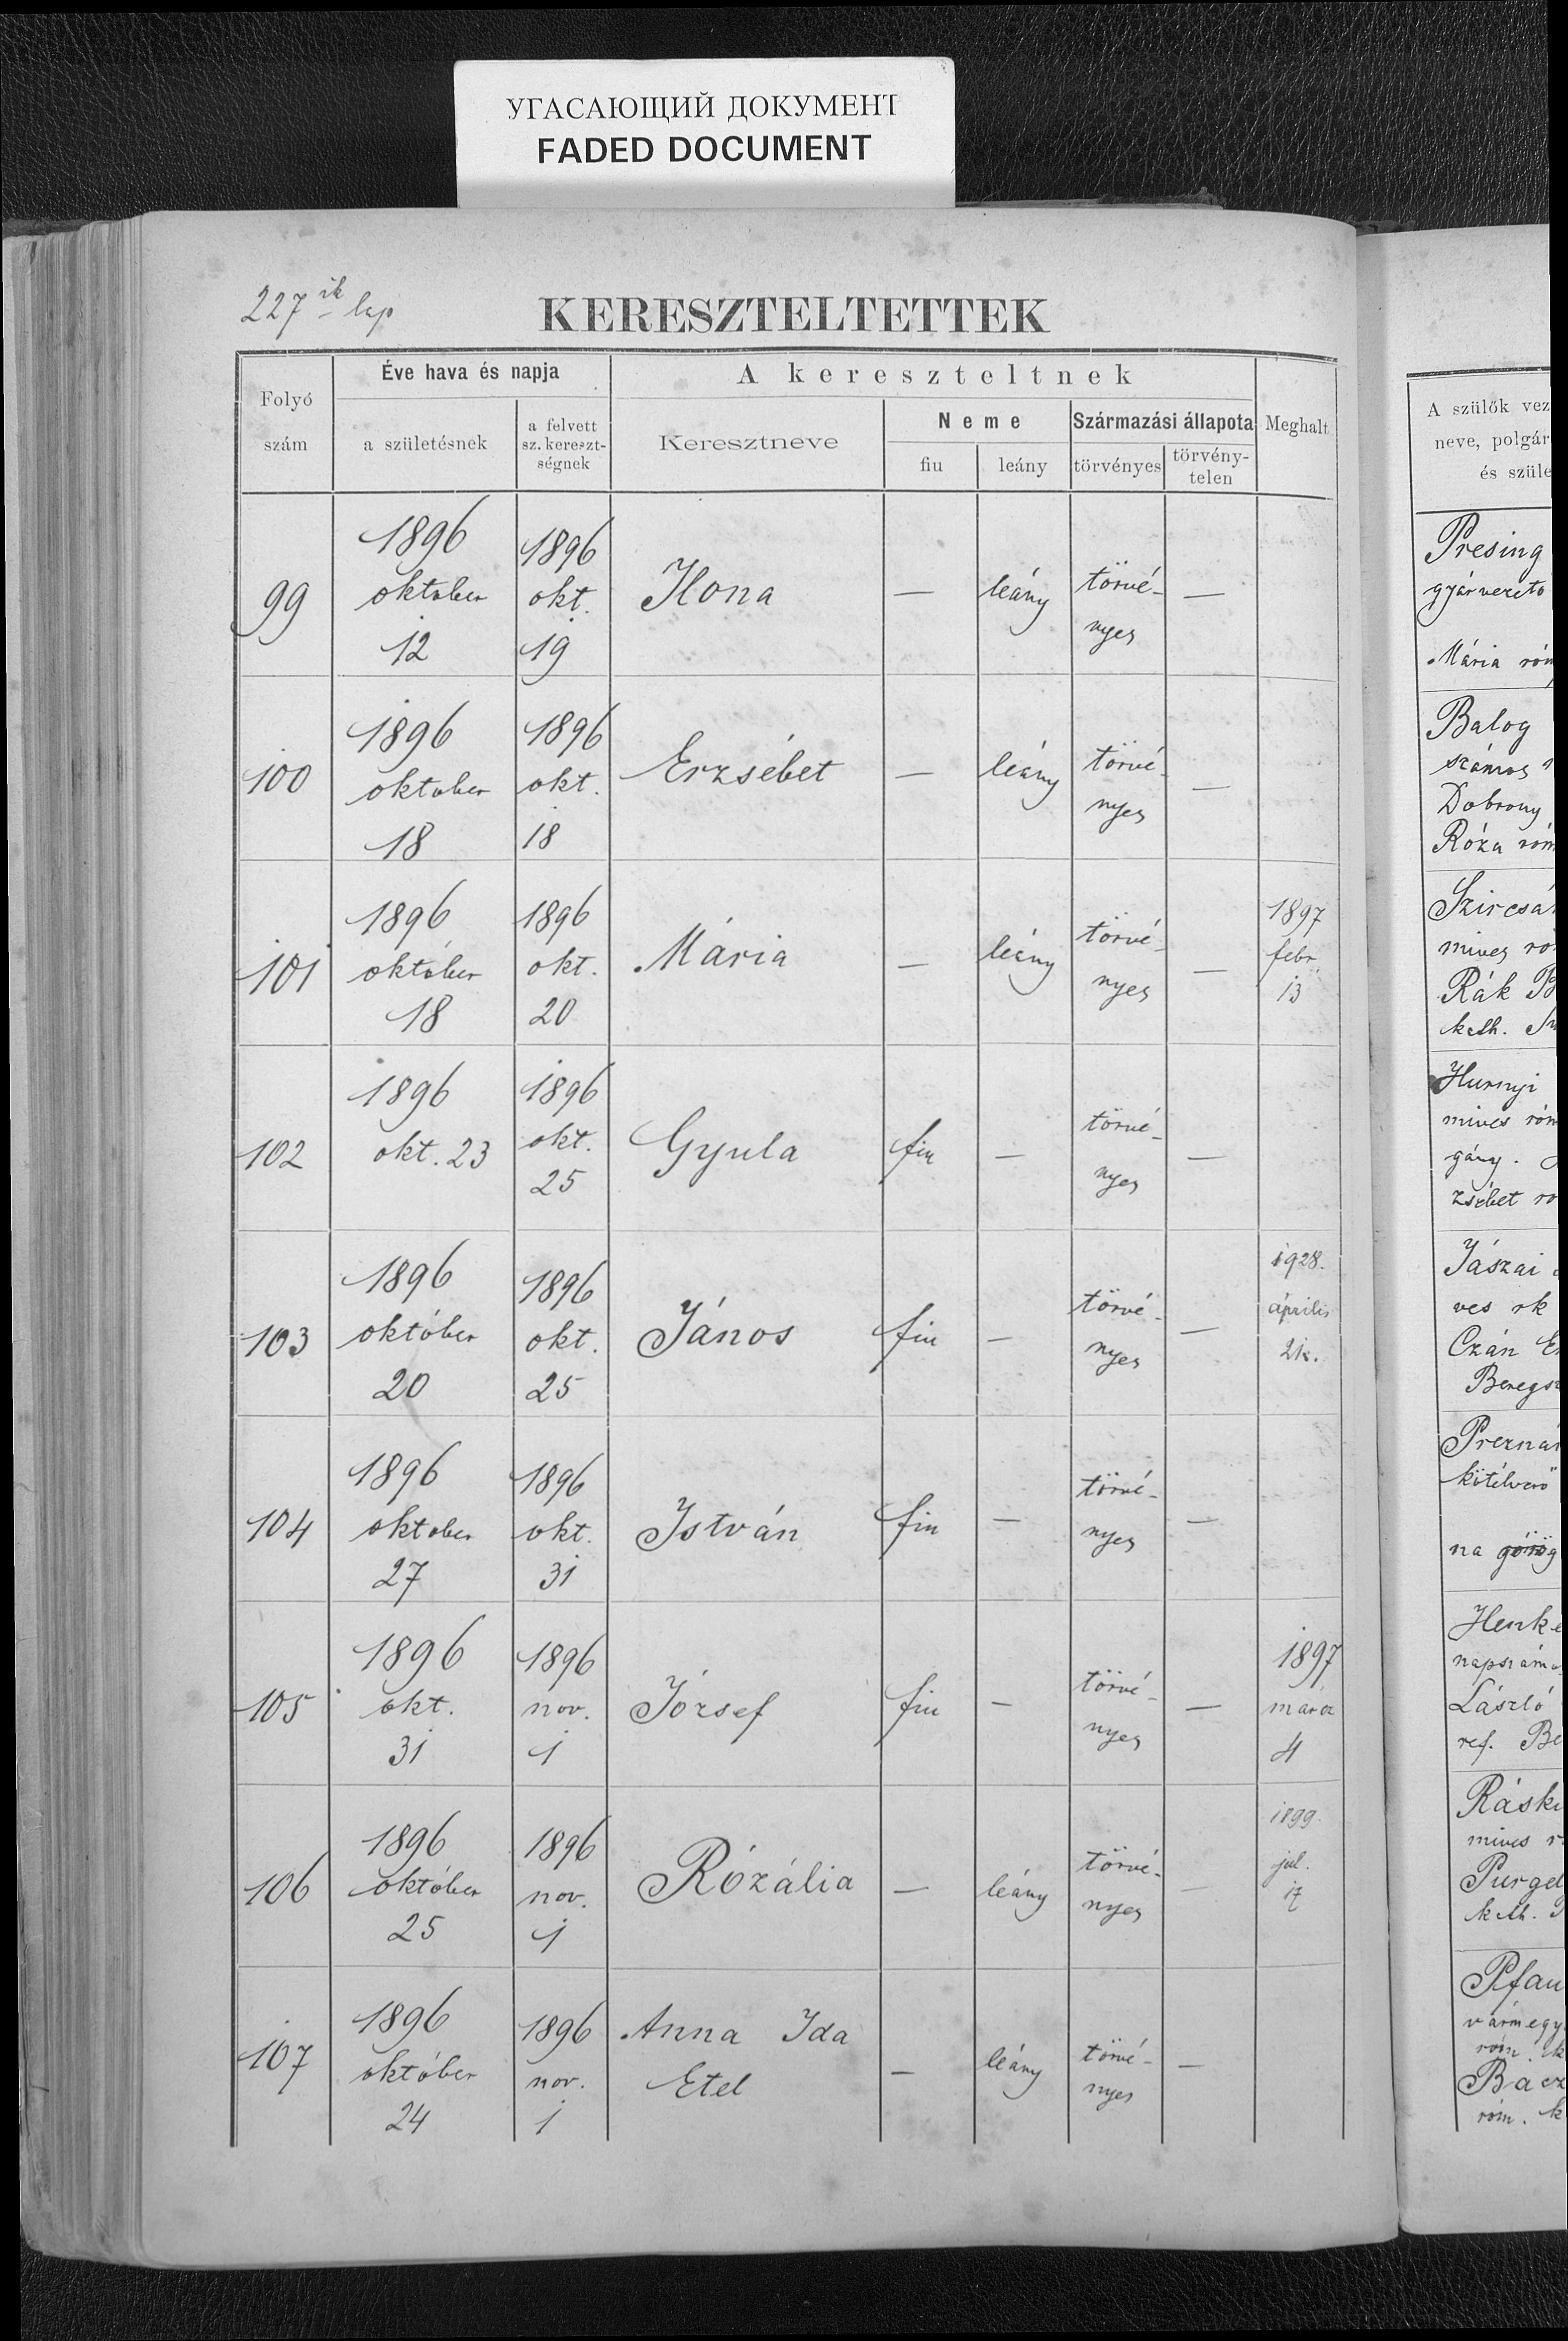 УГАСАЮЩИЙ ДОКУМЕНТ
FADED DOCUMENT
227 ik lap
KERESZTELTETTEK
Folyó szám
Éve hava és napja
a születésnek
a felvett sz. kereszt-ségnek
A kereszteltnek
Keresztneve
Neme
fiu
leány
Származási állapota
törvényes
törvény-telen
Meghalt
99 1896 október 12 1896 okt. 19 Ilona — leány törvé-nyes —
100 1896 október 18 1896 okt. 18 Erzsébet — leány törvé-nyes —
101 1896 október 18 1896 okt. 20 Mária — leány törvé-nyes — 1897 febr. 13
102 1896 okt. 23 1896 okt. 25 Gyula fiu — törvé-nyes —
103 1896 október 20 1896 okt. 25 János fiu — törvé-nyes — 1928. április
104 1896 október 27 1896 okt. 31 István fiu — törvé-nyes —
105 1896 okt. 31 1896 nov. 1 József fiu — törvé-nyes — 1897 márcz 4
106 1896 október 25 1896 nov. 1 Rózália — leány törvé-nyes — 1899. jul. 17
107 1896 október 24 1896 nov. 1 Anna Ida Etel — leány törvé-nyes —
A szülők vez
neve, polgár
és szüle
Presing
gyárvezető
Mária róm
Balog
számos
Dobrony
Róza róm
Szircsá
mives ró
Rák B
kath.
Hurnyi
mives róm
gány.
zsébet ro
Jászai
ves rk
Czán E
Beregsz
Prezná
kötélverő
na görög
Henke
napszámo
László
ref. Be
Rásk
mives r
Purgel
kath.
Pfau
vármegy
róm. k
Bacz
róm. k